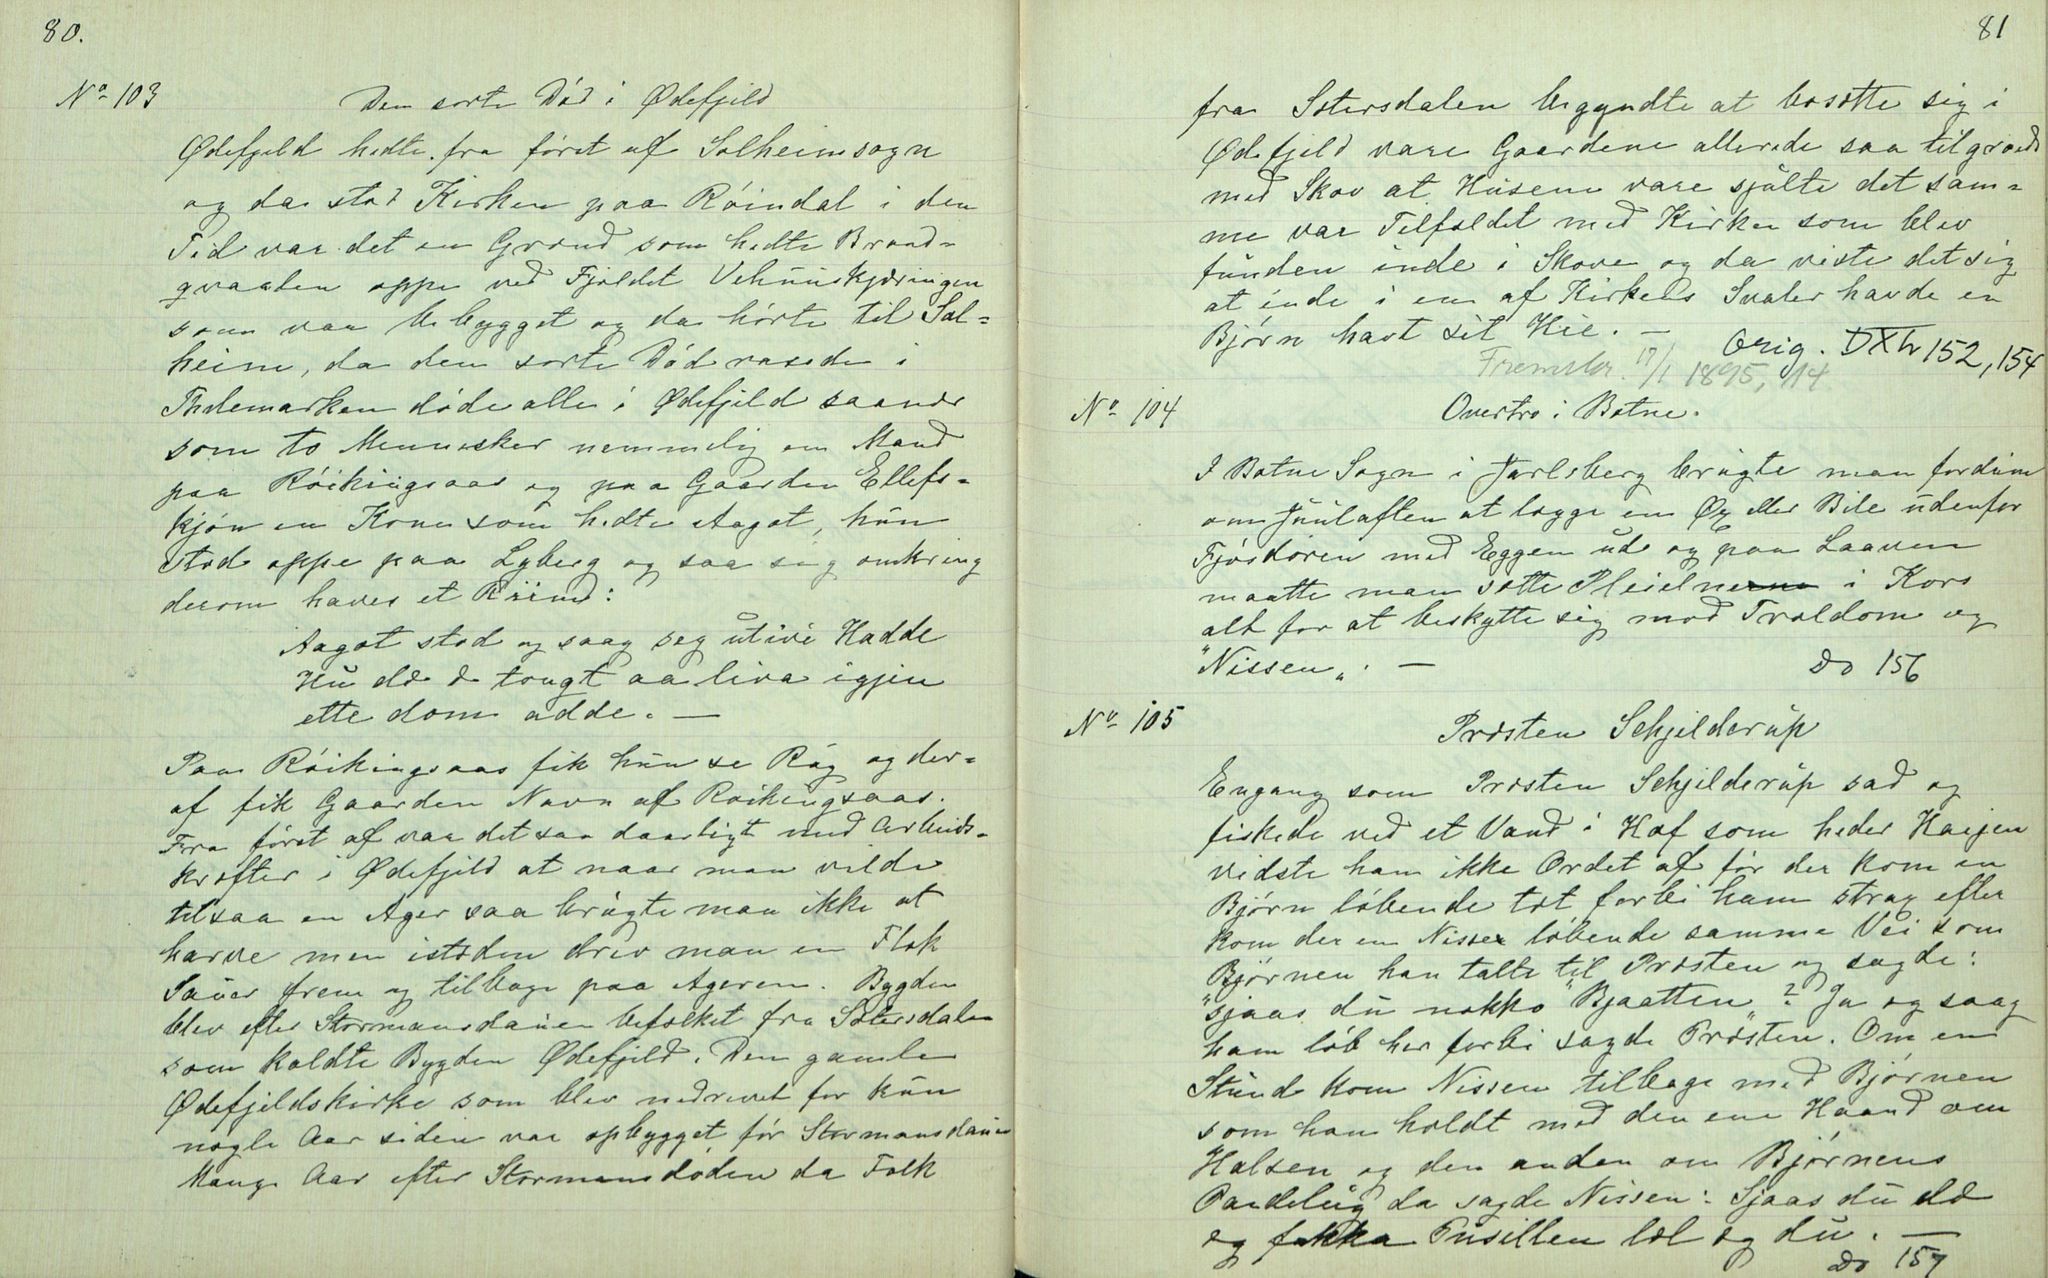 80.
No 103
Den sorte Død i Ødefjeld
Ødefjeld hedte fra først af Solheimsogn
og da stod Kirken paa Røindal i den
Tid var det en Grænd som hedte Brond-
qvaalen oppe ved Fjeldet Vehuuskjæringen
som var bebygget og da hørte til Sol-
heim, da den sorte Død rasede i
Thelemarken døde alle i Ødefjeld saanær
som to Mennesker nemmelig en Mand
paa Røikingsaas og paa Gaarden Ellefs-
kjøn en Kone som hedte Aagot, hun
stod oppe paa Lyberg og saa sig omkring
derom haves et Riim:
Aagot stod og saag seg utivi Hadde
Hu elde tongt aa liva igjen
ette dom adde. —
Paa Røikingsaas fik hun se Røg og der-
af fik Gaarden Navn af Røikingsaas.
Fra først af var det saa daarligt med Arbeids-
kræfter i Ødefjeld at naar man vilde
tilsaa en Ager saa brugte man ikke at
harve men isteden drev man en Flok
Sauer frem og tilbage paa Ageren. Bygden
blev efter Stormansdauen befolket fra Sætersdalen
som kaldte Bygden Ødefjeld. Den gamle
Ødefjeldskirke som blev nedrevet for kun
nogle Aar siden var opbygget før Stormansdauen
Mange Aar efter Stormansdøden da Folk
81
fra Sætersdalen begyndte at bosætte sig i
Ødefjeld vare Gaardene allerede saa tilgroede
med Skov at Husene vare sjulte det sam-
me var Tilfældet med Kirken som blev
funden inde i Skove og da viste det sig
at inde i en af Kirkens Svaler havde en
Bjørn havt sit Hie. —
Orig. DXL 152, 154
17/1 1895, 14
No 104
Overtro i Botne.
I Botne Sogn i Jarlsberg brugte man fordum
om Juulaften at lægge en Øx eller Bile udenfor
Fjøsdøren med Eggen ud og paa Laaven
maatte man sætte Pleielnerne i Kors
alt for at beskytte sig mod Troldom og
"Nissen". —
Do 156
No 105
Presten Schjelderup
Engang som Presten Schjelderup sad og
fiskede ved et Vand i Hof som heder Haijen
vidste han ikke Ordet af før der kom en
Bjørn løbende tæt forbi ham strax efter
kom der en Nisse løbende samme Vei som
Bjørnen han talte til Presten og sagde:
"sjaas du nokko Bjaatten"? Ja eg saag
ham løb her forbi sagde Presten. Om en
Stund kom Nissen tilbage med Bjørnen
som han holdt med den ene Haand om
Halsen og den anden om Bjørnens
Pandelug da sagde Nissen: Sjaas du eld
eg fækka Pusillen læl eg du. —
Do 157